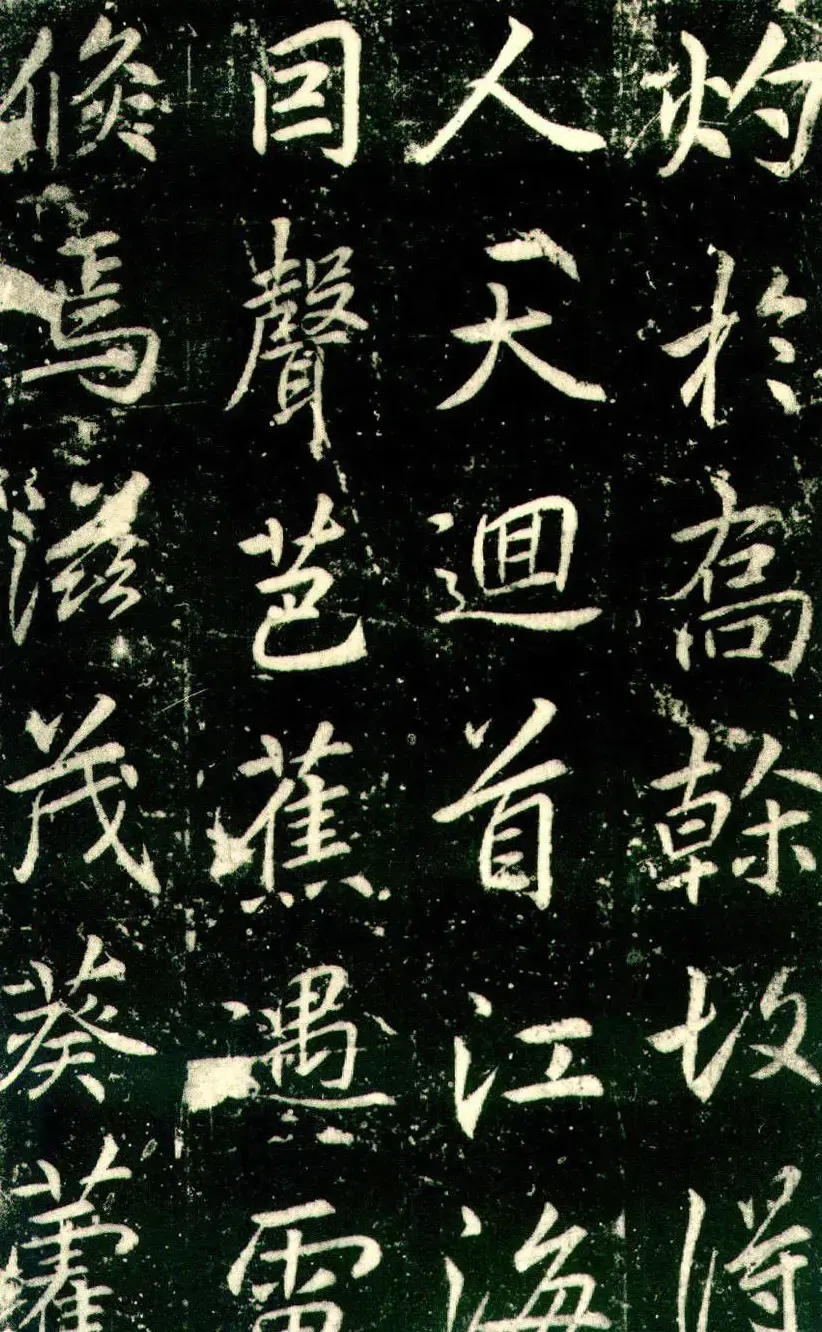 灼於喬幹故得
人天迴首江海
因聲芭蕉遇雷
倏焉滋茂葵藿